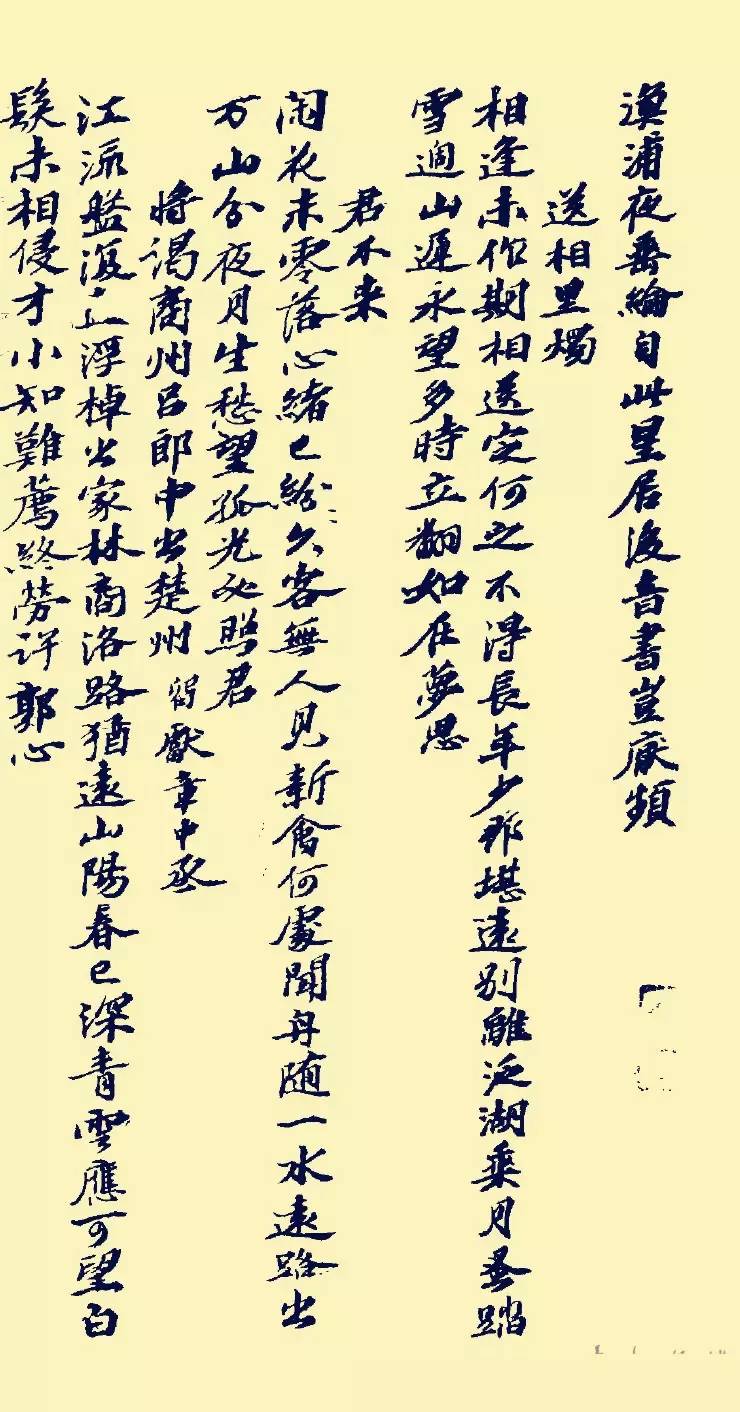 漁浦夜垂綸自此星居後音書豈厭頻
送相里燭
相逢未作期相送定何之不得長年少那堪遠別離泛湖乘月早踏
雪過山遲永望多時立翻如在夢思
君不来
閑花未零落心緒已紛〻久客無人見新禽何處聞舟随一水遠路出
万山分夜月生愁望孤光必照君
将謁商州吕郎中出楚州留獻章中丞
江流盤復直浮棹出家林商洛路猶遠山陽春已深青雲應可望白
髮未相侵才小知難薦終勞許郭心